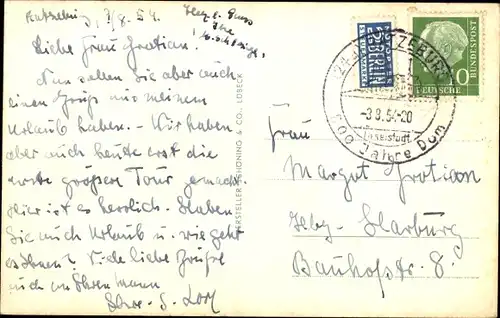 3/8.54.
Liebe Frau Grotian.
Nun sollen Sie aber auch
einen Gruß aus meinem
Urlaub haben. Wir haben
aber auch heute erst die
erste größere Tour gemacht.
Hier ist es herrlich. Haben
Sie auch Urlaub u. wie geht
es Ihnen? Viele liebe Grüße
auch an Ihren Mann
Ihre
HERSTELLER & CO., LÜBECK
NOTOPFER
2
BERLIN
STEUERMARKE
DEUTSCHE
BUNDESPOST
-3.8.54-20
Inselstadt
Jahre Dom
Frau
Margot Grotian
Hbg-Harburg
Bauhofstr. 8